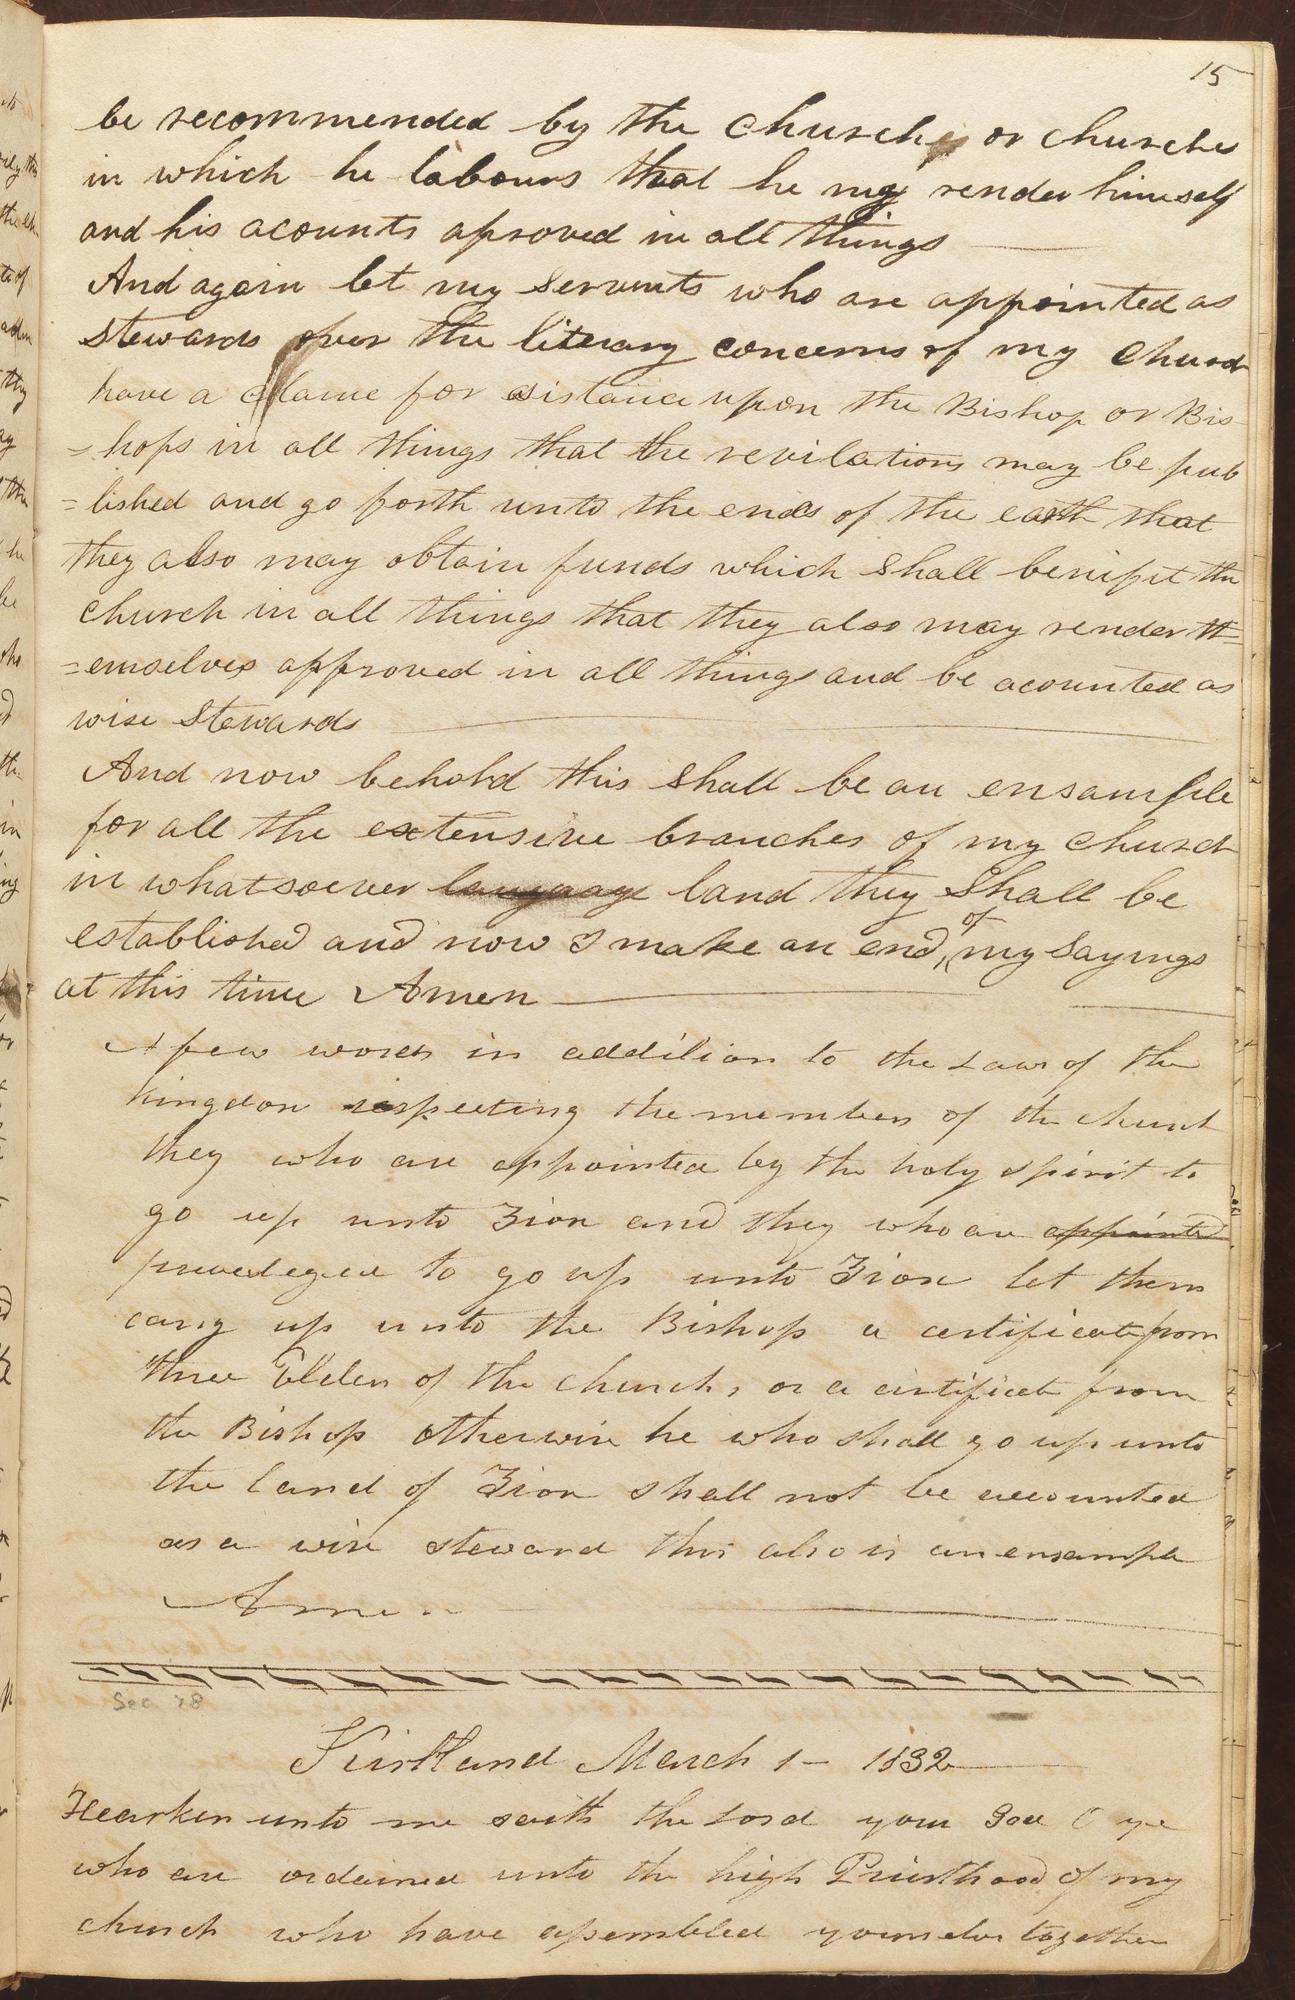 15
be recommended by the church or churches
in which he labours that he may render himself
and his acounts aproved in all things
And again let my servents who are appointed as
stewards over the literary concerns of my church
have a clame for asistance upon the Bishop or Bis
=hops in all things that the revilations may be pub
=lished and go forth unto the ends of the earth that
they also may obtain funds which shall benifit the
church in all things that they also may render th=
=emselves approved in all things and be acounted as
wise stewards
And now behold this shall be an ensample
for all the extensive branches of my church
in whatsoever language land they shall be
established and now I make an end, of my sayings
at this time Amen
A few words in addition to the Laws of the
kingdom respecting the members of the church
they who are appointed by the holy spirit to
go up unto Zion and they who are appointed
priveleged to go up unto Zion let them
carry up unto the Bishop a certificate from
three Elders of the church, or a certificate from
the Bishop otherwise he who shall go up unto
the land of Zion shall not be accounted
as a wise steward this also is an ensample
Amen
Sec 78
Kirtland March 1 - 1832
Hearken unto me saith the Lord your God O ye
who are ordained unto the high Priesthood of my
church who have assembled yourselves together